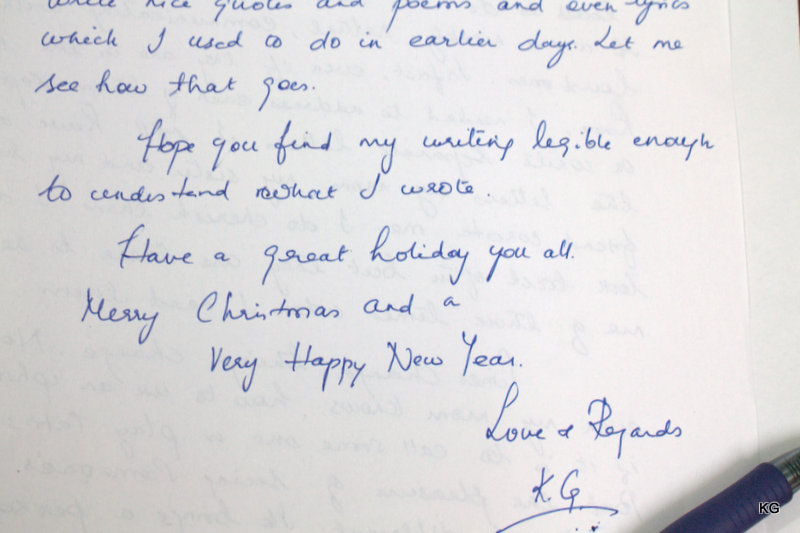 write nice quotes and poems and even lyrics
which I used to do in earlier days. Let me
see how that goes.
Hope you find my writing legible enough
to understand what I wrote.
Have a great holiday you all.
Merry Christmas and a
Very Happy New Year.
Love & Regards
KG
KG